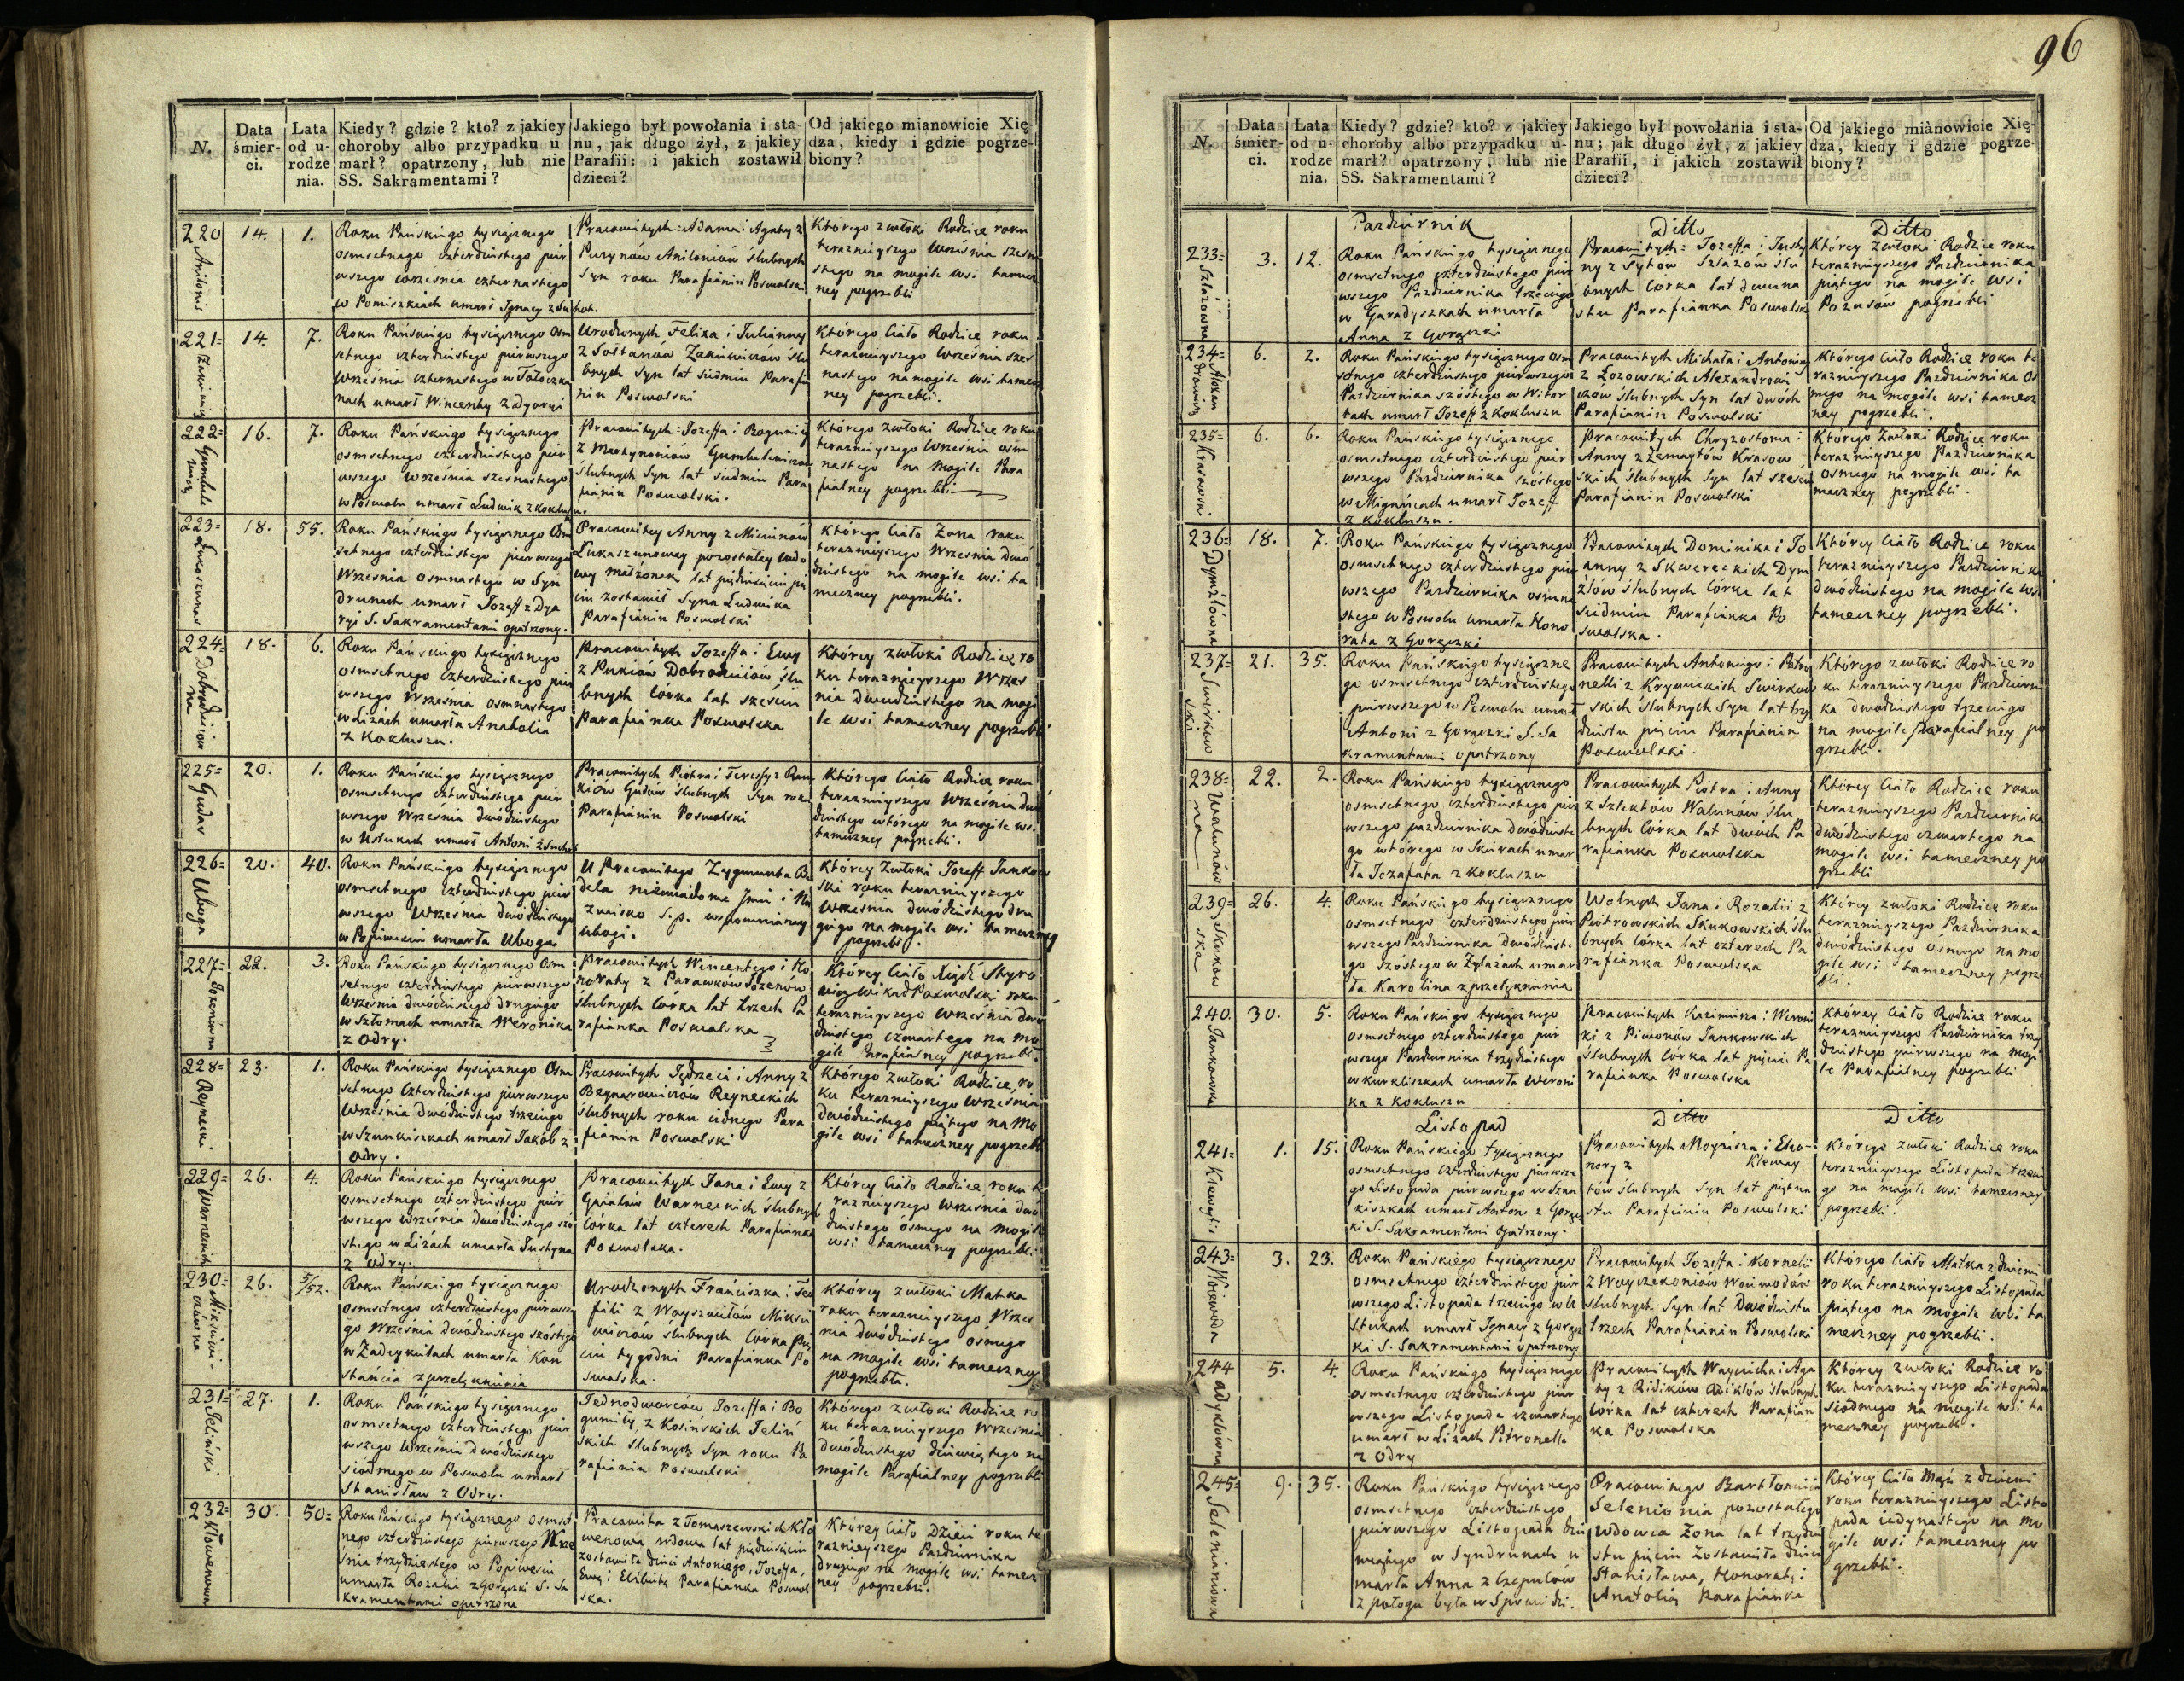 96
N.
Data śmierci.
Lata od urodzenia.
Kiedy? gdzie? kto? z jakiey
choroby albo przypadku u
marł? opatrzony, lub nie
SS. Sakramentami?
Jakiego był powołania i sta-
nu, jak długo żył, z jakiey
Parafii: i jakich zostawił
dzieci?
Od jakiego mianowicie Xię-
dza, kiedy i gdzie pogrze-
biony?
220 Anilonis
14.
1.
Roku Pańskiego tysiącznego
osmsetnego czterdziestego pier
wszego września czternastego
w Pomiszkiach umarł Ignacy z Suchot.
Pracowitych: Adama i Agaty z
Puzynów Aniloniów ślubnych
Syn roku Parafianin Poswolski
Którego zwłoki Rodzice roku
teraznieyszego Września szesna
stego na mogile wsi tamecz
ney pogrzebli
221=
14.
7.
Roku Pańskiego tysiącznego Osm
setnego czterdziestego pierwszego
Września czternastego w Tołoczka
nach umarł Wincenty z Dyaryi
Urodzonych Felixa i Julianny
z Sołtanów Zakiewiczów Ślu
bnych Syn lat siedmiu Parafia
nin Poswolski
Którego Ciało Rodzice roku
teraznieyszego Września szes
nastego na mogile wsi tamecz
ney pogrzebli.
222= Gumbule
wicz
16.
7.
Roku Pańskiego tysiącznego
osmsetnego czterdziestego pier
wszego Września szesnastego
w Poswolu umarł Ludwik z Kokluszu.
Pracowitych: Jozeffa i Bogumiły
z Martynoniów Gumbulewiczów
ślubnych Syn lat siedmiu Para
fianin Poswolski.
Którego zwłoki Rodzice roku
teraznieyszego Września ośm
nastego na Mogile Para
fialney pogrzebli
223= Łukaszunas
18.
55.
Roku Pańskiego tysiącznego Osm
setnego czterdziestego pierwszego
Września osmnastego w Syn
drunach umarł Jozeff z Dya
ryi S. Sakramentami opatrzony.
Pracowitey Anny z Miciunów
Łukaszunowey pozostałey wdo
wy małżonek lat pięćdziesiąt pię
ciu zostawił Syna Ludwika
Parafianin Poswolski
Którego Ciało Żona roku
teraznieyszego Września dwó
dziestego na mogile wsi ta
meczney pogrzebli.
224=
18.
6.
Roku Pańskiego tysiącznego
osmsetnego czterdziestego pier
wszego Września osmnastego
w Liżach umarła Anatolia
z Kokluszu.
Pracowitych Jozeffa i Ewy
z Pukiów Dobrodieiów ślu
bnych Córka lat sześciu
Parafianka Poswolska
Którey zwłoki Rodzice ro
ku teraznieyszego Wrześ
nia dwudziestego na mogi
le wsi tameczney pogrzebli
225= Gudas
20.
1.
Roku Pańskiego tysiącznego
osmsetnego czterdziestego pier
wszego Września dwódziestego
w Ustukach umarł Antoni z Suchot
Pracowitych Piotra i Teressy z Rau
kiów Gudów ślubnych Syn roku
Parafianin Poswolski
Którego Ciało Rodzice roku
teraznieyszego Września dwó
dziestego wtórego na mogile wsi
tameczney pogrzebli.
226= Uboga
20.
40.
Roku Pańskiego tysiącznego
osmsetnego czterdziestego pier
wszego Września dwódziestego
w Popiwesiu umarła Uboga
U Pracowitego Zygmunta Be
dela niewiadome Jmie i Na
zwisko S. p. wspomnianey
ubogi.
Którey Zwłoki Jozeff Jankow
ski roku teraznieyszego
Września dwódziestego dru
giego na mogile wsi tameczney
pogrzebł.
227= Jozeniówna
22.
3.
Roku Pańskiego tysiącznego Osm
setnego czterdziestego pierwszego
Września dwódziestego drugiego
w Szłomach umarła Weronika
z Odry.
Pracowitych Wincentego i Ho
noraty z Parawków Jozenów
ślubnych Córka lat trzech Pa
rafianka Poswolska
Którey Ciało Xiądz Styro
wicz Wikary Poswolski roku
teraznieyszego Września dwó
dziestego czwartego na mo
gile Parafialney pogrzebł.
228= Reynecki
23.
1.
Roku Pańskiego tysiącznego Osm
setnego Czterdziestego pierwszego
Września dwódziestego trzeciego
w Szunkiszkach umarł Jakób z
Odry.
Pracowitych Jędrzeia i Anny z
Beynarowiczów Reyneckich
ślubnych roku iednego Para
fianin Poswolski
Którego zwłoki Rodzice ro
ku teraznieyszego Września
dwódziestego piątego na Mo
gile wsi tameczney pogrzebli
229=
26.
4.
Roku Pańskiego tysiącznego
osmsetnego czterdziestego pier
wszego Września dwódziestego szó
stego w Liżach umarła Justyna
z Odry.
Pracowitych Jana i Ewy z
Gaiałów Warneckich ślubnych
Córka lat czterech Parafianka
Poswolska.
Którey Ciało Rodzice roku te
raznieyszego Września dwó
dziestego ósmego na mogile
wsi tameczney pogrzebli.
230= Miksiewi
czówna
26.
5/52.
Roku Pańskiego tysiącznego
osmsetnego czterdziestego pierwsze
go Września dwódziestego szóstego
w Zadeykiłach umarła Kon
stancia z przelęknienia
Urodzonych Franciszka i Teo
fili z Woyszwiłłów Miksie
wiczów ślubnych Córka pię
ciu tygodni Parafianka Po
swolska.
Którey zwłoki Matka
roku teraznieyszego Wrześ
nia dwódziestego osmego
na mogile wsi tameczney
pogrzebła.
231= Jeliński
27.
1.
Roku Pańskiego tysiącznego
osmsetnego czterdziestego pier
wszego Września dwódziestego
siódmego w Poswolu umarł
Stanisław z Odry.
Jednodworców Jozeffa i Bo
gumiły z Kosińskich Jeliń
skich ślubnych Syn roku Pa
rafianin Poswolski
Którego zwłoki Rodzice ro
ku teraznieyszego Września
dwódziestego dziewiątego na
mogile Parafialney pogrzebli
232= Kłowenowa
30.
50=
Roku Pańskiego tysiącznego osmset
nego czterdziestego pierwszego Wrze
śnia trzydziestego w Popiwesiu
umarła Rozalia z Gorączki S. Sa
kramentami opatrzona
Pracowita z Tomaszewskich Kło
wenowa wdowa lat pięćdziesiąt
zostawiła dzieci Antoniego, Jozeffa,
Ewę i Elżbietę Parafianka Poswol
ska.
Którey Ciało Dzieci roku te
raznieyszego Pazdziernika
drugiego na mogile wsi tamecz
ney pogrzebli.
N.
Data śmierci.
Lata od urodzenia.
Kiedy? gdzie? kto? z jakiey
choroby albo przypadku u-
marł? opatrzony, lub nie
SS. Sakramentami?
Jakiego był powołania i sta-
nu; jak długo żył, z jakiey
Parafii, i jakich zostawił
dzieci?
Od jakiego mianowicie Xię-
dza, kiedy i gdzie pogrze-
biony?
Pazdziernik
Ditto
Ditto
233= Szlazówna
3.
12.
Roku Pańskiego tysiącznego
osmsetnego czterdziestego pier
wszego Pazdziernika trzeciego
w Garadyszkach umarła
Anna z Gorączki
Pracowitych: Jozeffa i Justy
ny z Tytów Szlazów ślu
bnych Corka lat dwuna
stu Parafianka Poswolska
Którey Zwłoki Rodzice roku
teraznieyszego Pazdziernika
piątego na mogile Wsi
Pozusów pogrzebli
234= Alexan
drowicz
6.
2.
Roku Pańskiego tysiącznego osm
setnego czterdziestego pierwszego
Pazdziernika szóstego w Witar
tach umarł Jozeff z Kokluszu
Pracowitych Michała i Antoniny
z Łozowskich Alexandrowi
czów ślubnych Syn lat dwóch
Parafianin Poswolski
Którego Ciało Rodzice roku te
raznieyszego Pazdziernika Os
mego na mogile wsi tamecz
ney pogrzebli.
235= Krasowski
6.
6.
Roku Pańskiego tysiącznego
osmsetnego czterdziestego pier
wszego Pazdziernika szóstego
w Migańcach umarł Jozeff
z Kokluszu.
Pracowitych Chryzostoma i
Anny z Żemaytów Krasow
skich ślubnych Syn lat sześciu
Parafianin Poswolski
Którego Zwłoki Rodzice roku
teraznieyszego Pazdziernika
Osmego na mogile wsi ta
meczney pogrzebli.
236= Dymżłówna
18.
7.
Roku Pańskiego tysiącznego
osmsetnego czterdziestego pier
wszego Pazdziernika osmna
stego w Poswolu umarła Hono
rata z Gorączki
Pracowitych Dominika i Jo
anny z Skwereckich Dym
żłów ślubnych Córka lat
siedmiu Parafianka Po
swolska.
Którey Ciało Rodzice roku
teraznieyszego Pazdziernika
dwódziestego na mogile wsi
tameczney pogrzebli.
237= Swirkow
ski
21.
35.
Roku Pańskiego tysiączne
go osmsetnego czterdziestego
pierwszego w Poswolu umarł
Antoni z Gorączki S. Sa
kramentami opatrzony
Pracowitych Antoniego i Petro
nelli z Krywickich Swirkow
skich ślubnych Syn lat trzy
dziestu pięciu Parafianin
Poswolski.
Którego zwłoki Rodzice ro
ku teraznieyszego Pazdzierni
ka dwódziestego trzeciego
na mogile Parafialney po
grzebli.
238= Walunów
na
22.
2.
Roku Pańskiego tysiącznego
osmsetnego czterdziestego pier
wszego pazdziernika dwódzieste
go wtórego w Skirach umar
ła Jozafata z Kokluszu
Pracowitych Piotra i Anny
z Szlektów Walunów ślu
bnych Córka lat dwóch Pa
rafianka Poswolska
Którey Ciało Rodzice roku
teraznieyszego Pazdziernika
dwódziestego czwartego na
mogile wsi tameczney po
grzebli
239= Skukow
ska
26.
4.
Roku Pańskiego tysiącznego
osmsetnego czterdziestego pier
wszego Pazdziernika dwódzieste
go szóstego w Żylażach umar
ła Karolina z przelęknienia
Wolnych Jana i Rozalii z
Piotrowskich Skukowskich ślu
bnych Córka lat czterech Pa
rafianka Poswolska
Którey zwłoki Rodzice roku
teraznieyszego Pazdziernika
dwódziestego ósmego na mo
gile wsi tameczney pogrze
bli.
240. Jankowska
30.
5.
Roku Pańskiego tysiącznego
osmsetnego czterdziestego pier
wszego Pazdziernika trzydziestego
w Kurkliszkach umarła Weroni
ka z Kokluszu
Pracowitych Kazimierza i Weroni
ki z Piwonów Jankowskich
ślubnych Córka lat pięciu Pa
rafianka Poswolska
Którey Ciało Rodzice roku
teraznieyszego Pazdziernika trzy
dziestego pierwszego na mogi
le Parafialney pogrzebli
Listopad
Ditto
Ditto
241= Klewaytis
1.
15.
Roku Pańskiego tysiącznego
osmsetnego czterdziestego pierwsze
go Listopada pierwszego w Szun
kiszkach umarł Antoni z Gorącz
ki S. Sakramentami opatrzony.
Pracowitych Moyżesza i Eleo-
nory z Kleway
tów ślubnych Syn lat piętna
stu Parafianin Poswolski
Którego zwłoki Rodzice roku
teraznieyszego Listopada trzecie
go na mogile wsi tameczney
pogrzebli.
243= Woiewoda
3.
23.
Roku Pańskiego tysiącznego
osmsetnego czterdziestego pier
wszego Listopada trzeciego w U
stukach umarł Ignacy z Gorącz
ki S. Sakramentami opatrzony
Pracowitych Jozeffa i Kornelii
z Woyczekoniów Woiewodów
ślubnych Syn lat Dwódziestu
trzech Parafianin Poswolski
Którego Ciało Matka z dziećmi
roku teraznieyszego Listopada
piątego na mogile wsi ta
meczney pogrzebli.
244 Adyklówna
5.
4.
Roku Pańskiego tysiącznego
osmsetnego czterdziestego pier
wszego Listopada czwartego
umarła w Liżach Petronella
z Odry
Pracowitych Woyciecha i Aga
ty z Ridików Adiklów ślubnych
Córka lat czterech Parafian
ka Poswolska
Którey zwłoki Rodzice ro
ku teraznieyszego Listopada
siódmego na mogile wsi ta
meczney pogrzebli.
245= Selenianiowa
9.
35.
Roku Pańskiego tysiącznego
osmsetnego czterdziestego
pierwszego Listopada dzie
wiątego w Syndrunach u
marła Anna z Czepulów
z połogu była w Spowiedzi.
Pracowitego Bartłomieia
Selenionia pozostałego
wdowca Żona lat trzydzie
stu pięciu zostawiła dzieci
Stanisława, Honoratę i
Anatolią Parafianka
Którey Ciało Mąż z dziećmi
roku teraznieyszego Listo
pada iedynastego na mo
gile wsi tameczney po
grzebli.